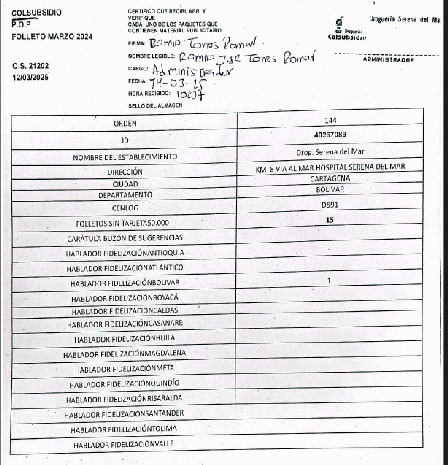 COLSUBSIDIO
P.O.P
FOLLETO MARZO 2024
C.S. 21202
12/03/2025
CERTIFICO QUE RECIBI ABRI Y
VERIFIQUE
CADA UNO DE LOS PAQUETES QUE
CONTIENEN MATERIAL PUBLICITARIO
FIRMA: Torres Roman
NOMBRE LEGIBLE: Torres Roman
CARGO: Administrador
FECHA: 14-03-25
HORA RECIBIDO:
SELLO DEL ALMACEN
COLSUBSIDIO
Droguería Serena del Mar
ADMINISTRADOR
ORDEN 144
ID 40257089
NOMBRE DEL ESTABLECIMIENTO Drop. Serena del Mar
DIRECCIÓN KM 8 VIA AL MAR HOSPITAL SERENA DEL MAR
CIUDAD CARTAGENA
DEPARTAMENTO BOLIVAR
CENLOG D591
FOLLETOS SIN TARJETA50.000 15
CARÁTULA BUZON DE SUGERENCIAS
HABLADOR FIDELIZACIÓNANTIOQUIA
HABLADOR FIDELIZACIONATLANTICO
HABLADOR FIDELIZACIONBOLIVAR 1
HABLADOR FIDELIZACIONBOYACÁ
HABLADOR FIDELIZACIONCALDAS
HABLADOR FIDELIZACIÓNCASANARE
HABLADOR FIDELIZACIÓNHUILA
HABLADOR FIDELIZACIÓNMAGDALENA
HABLADOR FIDELIZACIÓNMETA
HABLADOR FIDELIZACIÓNQUINDÍO
HABLADOR FIDELIZACIÓNRISARALDA
HABLADOR FIDELIZACIONSANTANDER
HABLADOR FIDELIZACIÓNTOLIMA
HABLADOR FIDELIZACIÓNVALLE